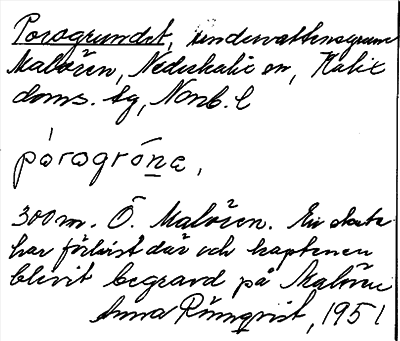 Porogrundet, undervattensgrund
Malören, Nederkalix sn, Kalix
doms. tg, Nonb. l
pårogróne,
300 m. Ö. Malören. En skuta
har förlist där och kaptenen
blivit begravd på Malören
Anna Rönnqvist, 1951